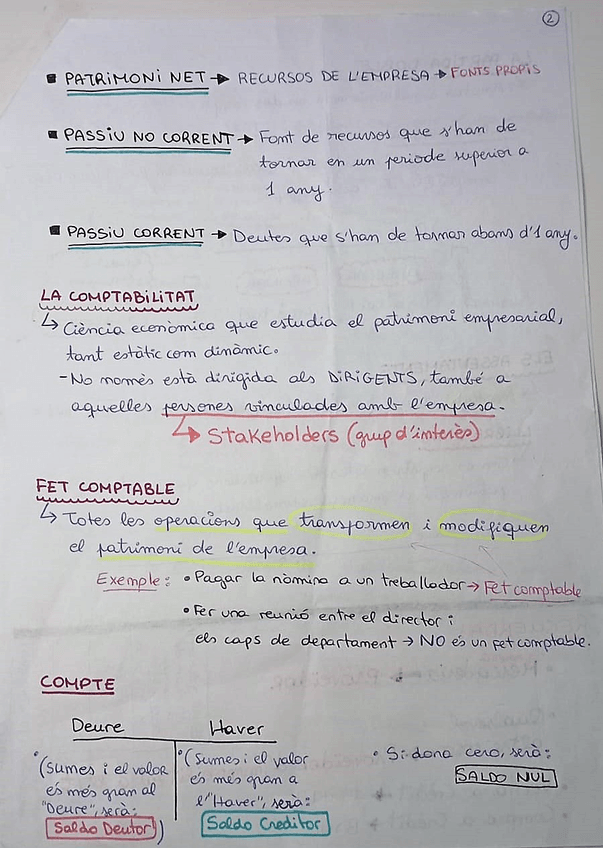 2
■ PATRIMONI NET → RECURSOS DE L'EMPRESA → FONTS PROPIS
■ PASSIU NO CORRENT → Font de recursos que s'han de
tornar en un periode superior a
1 any.
■ PASSIU CORRENT → Deutes que s'han de tornar abans d'1 any.
LA COMPTABILITAT
↳ Ciència econòmica que estudia el patrimoni empresarial,
tant estàtic com dinàmic.
- No només està dirigida als DIRIGENTS, també a
aquelles persones vinculades amb l'empresa.
↳ Stakeholders (grup d'interès)
FET COMPTABLE
↳ Totes les operacions que transformen i modifiquen
el patrimoni de l'empresa.
Exemple: • Pagar la nòmina a un treballador → Fet comptable
• Fer una reunió entre el director i
els caps de departament → NO és un fet comptable.
COMPTE
Deure Haver
• (Sumes i el valor
és més gran al
"Deure", serà:
Saldo Deutor)
• (Sumes i el valor
és més gran a
l'"Haver", serà:
Saldo Creditor
• Si dona cero, serà:
SALDO NUL